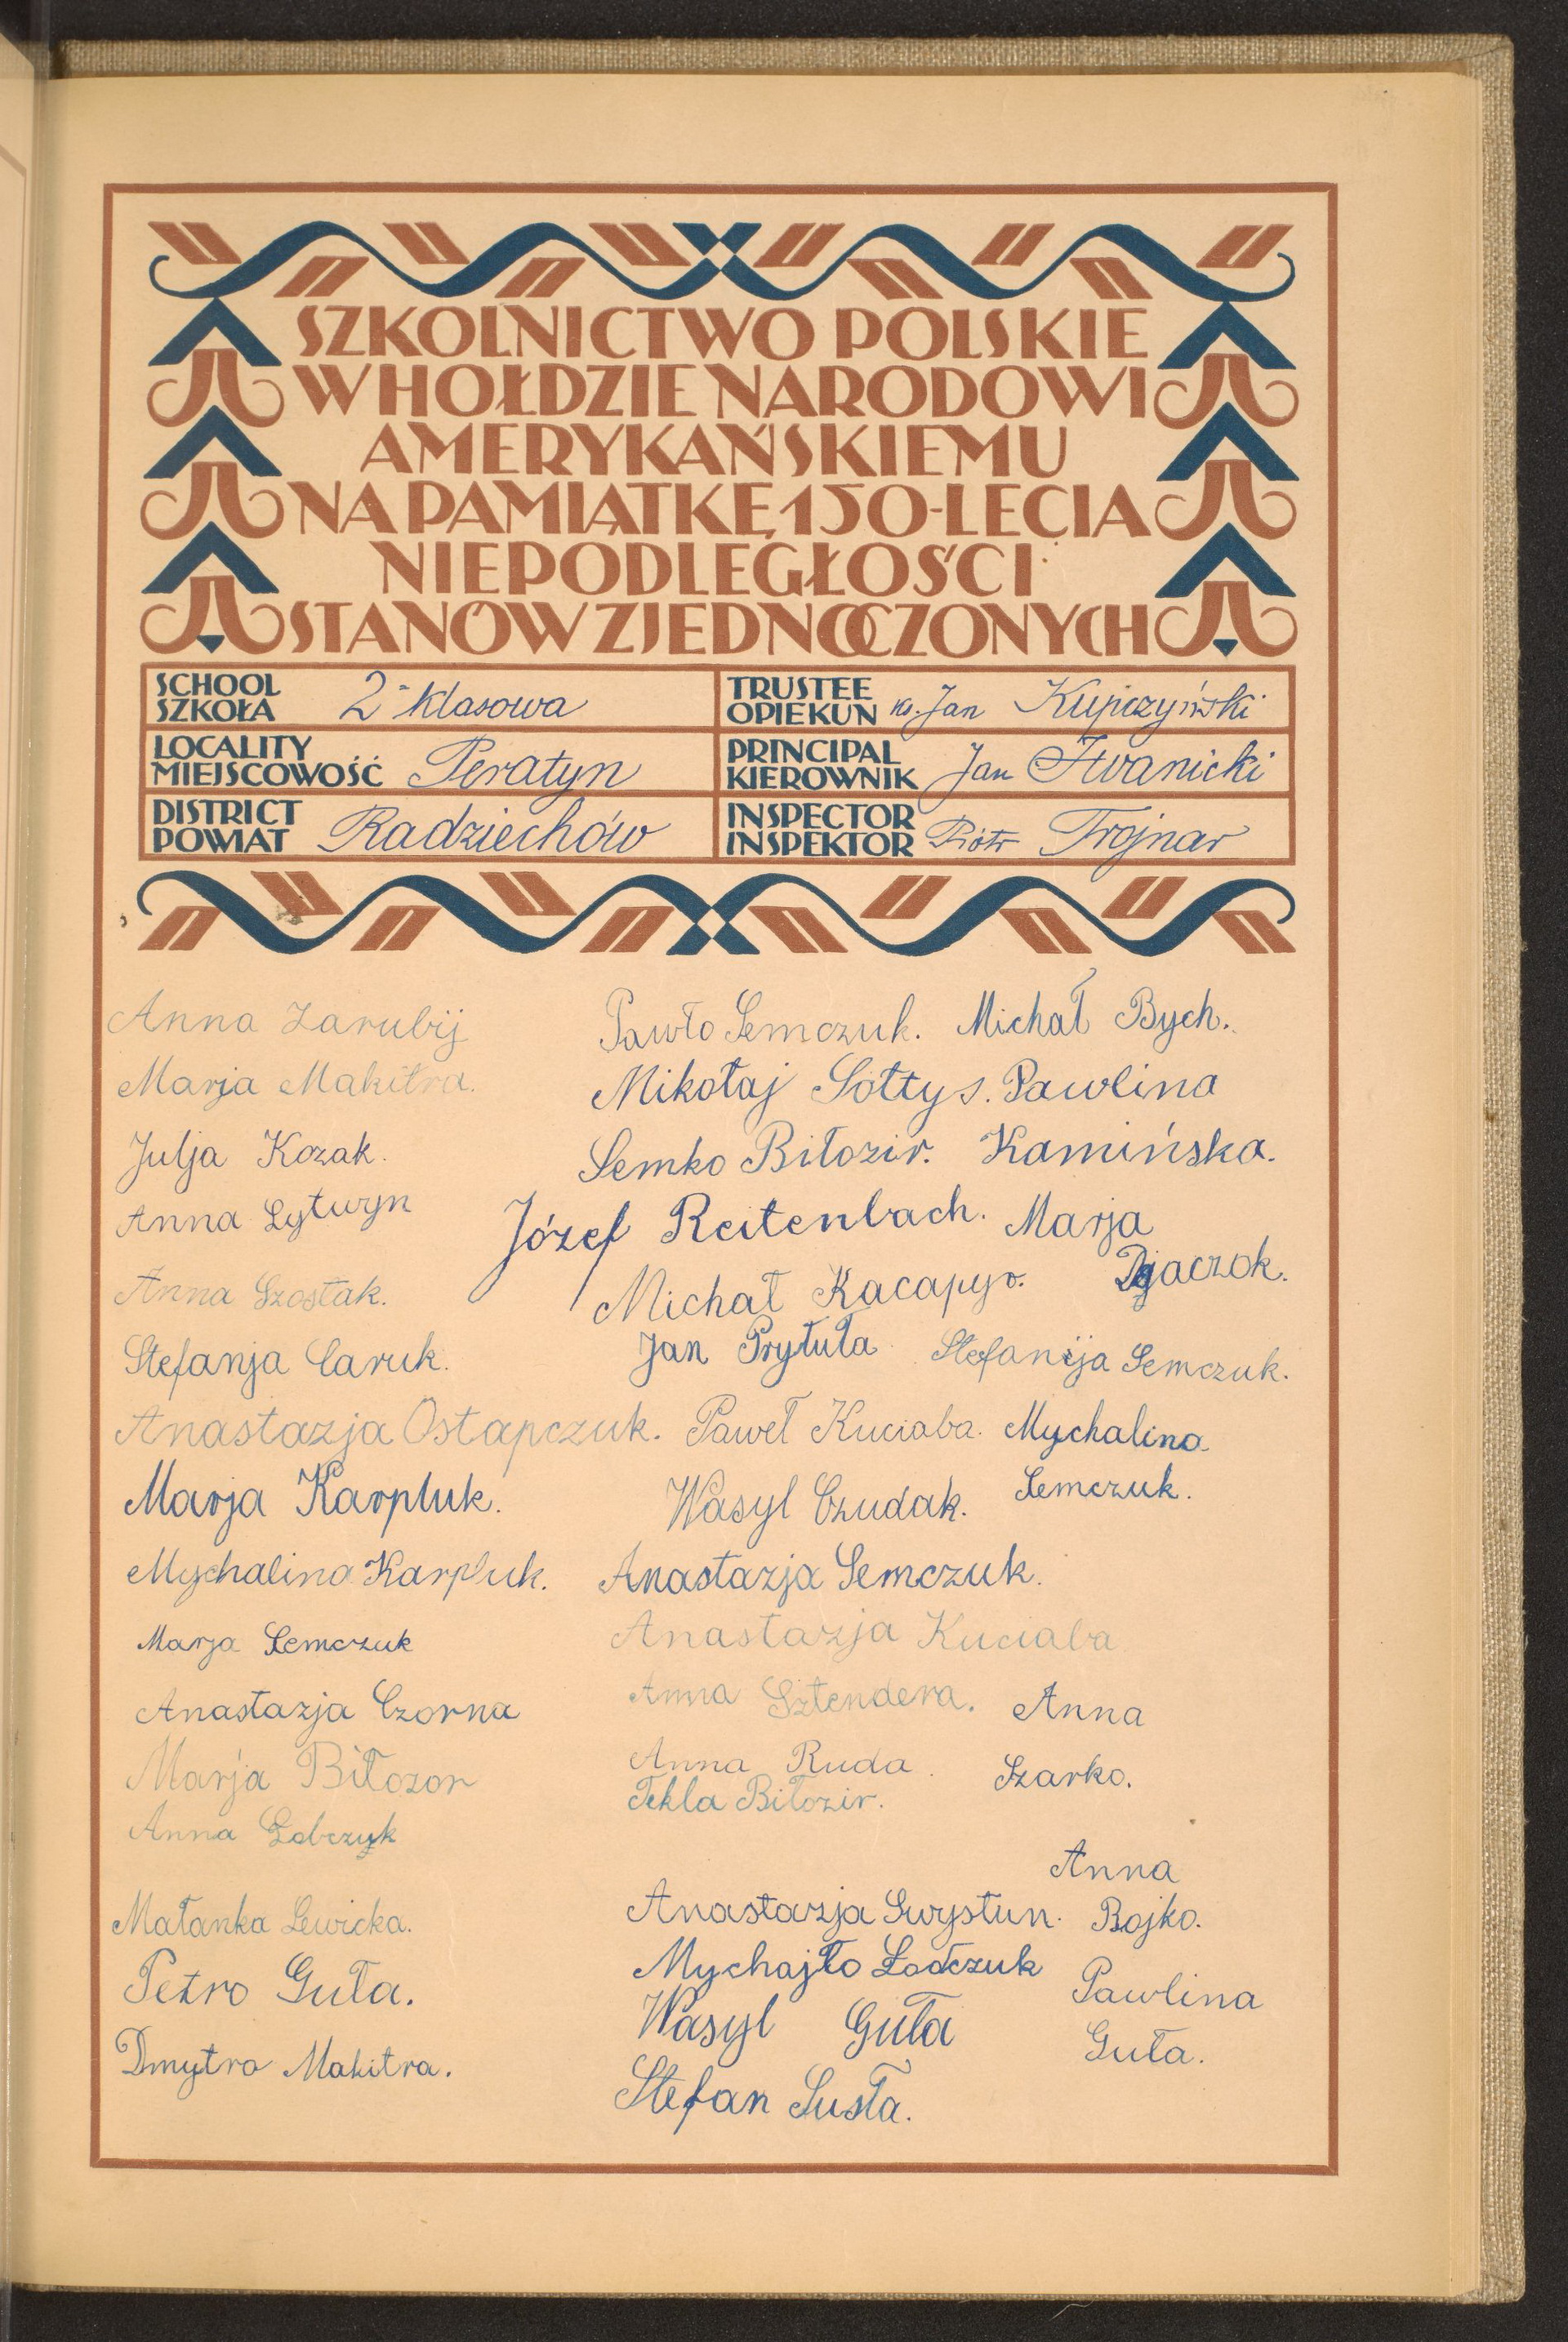 SZKOLNICTWO POLSKIE
W HOŁDZIE NARODOWI
AMERYKAŃSKIEMU
NA PAMIĄTKĘ 150-LECIA
NIEPODLEGŁOŚCI
STANÓW ZJEDNOCZONYCH
SCHOOL
SZKOŁA 2-klasowa
TRUSTEE
OPIEKUN ks. Jan Kupczyński
LOCALITY
MIEJSCOWOŚĆ Peratyn
PRINCIPAL
KIEROWNIK Jan Iwanicki
DISTRICT
POWIAT Radziechów
INSPECTOR
INSPEKTOR Piotr Trojnar
Anna Zarubij
Marja Makitra.
Julja Kozak.
Anna Lytwyn
Anna Szostak.
Stefanja Caruk.
Anastazja Ostapczuk.
Marja Karpluk.
Mychalina Karpluk.
Marja Semczuk
Anastazja Czorna
Marja Biłozor
Anna
Małanka Lewicka.
Petro Guła.
Dmytro Makitra.
Pawło Semczuk.
Mikołaj Sołtys.
Semko Biłozir.
Józef Reitenbach.
Michał Kacapyr.
Jan Prytuła
Paweł Kuciaba.
Wasyl Czudak.
Anastazja Semczuk.
Anastazja Kuciaba
Anna Sztendera.
Anna Ruda.
Tekla Biłozir.
Anastazja Swystun.
Mychajło
Wasyl Guła
Stefan Susła.
Michał Bych.
Pawlina
Kamińska.
Marja
Djaczok.
Stefanija Semczuk.
Mychalina
Semczuk.
Anna
Szarko.
Anna
Bojko.
Pawlina
Guła.